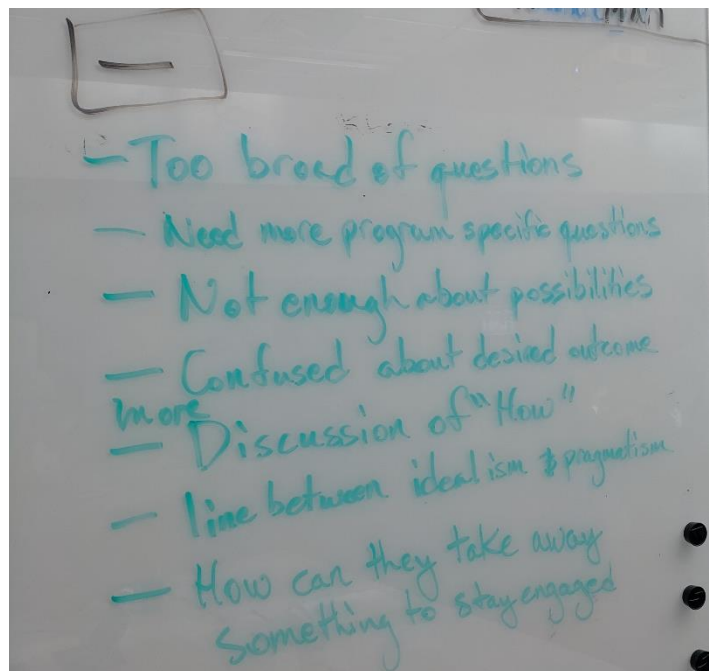 —
— Too broad of questions
— Need more program specific questions
— Not enough about possibilities
— Confused about desired outcome
more
— Discussion of "How"
— line between idealism & pragmatism
— How can they take away
something to stay engaged